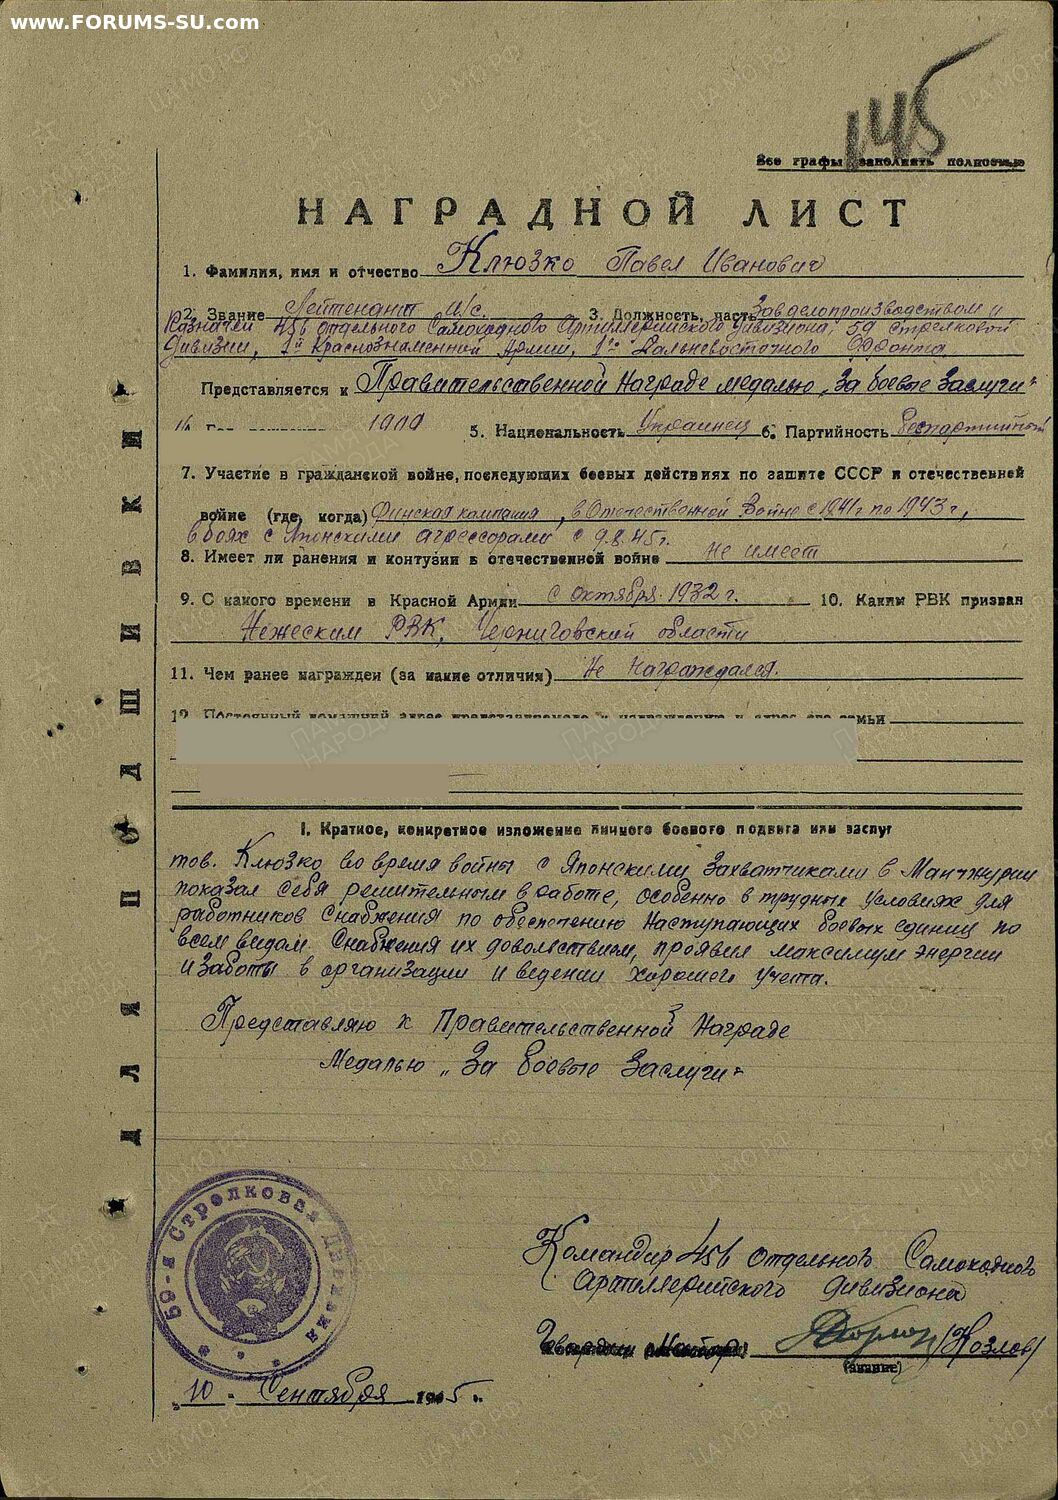 www.FORUMS-SU.com
145
Все графы заполнять полностью
НАГРАДНОЙ ЛИСТ
1. Фамилия, имя и отчество Клюзко Павел Иванович
2. Звание Лейтенант И/с. 3. Должность, часть Завделопроизводством и
Казначей 456 отдельного Самоходного Артиллерийского Дивизиона, 59 Стрелковой
Дивизии, 1й Краснознаменной Армии, 1го Дальневосточного Фронта
Представляется к Правительственной Награде медалью „За боевые Заслуги"
1909 5. Национальность Украинец 6. Партийность беспартийный
7. Участие в гражданской войне, последующих боевых действиях по защите СССР и отечественной
войне (где, когда) Финская компания, в Отечественной Войне с 1941г по 1943г,
в боях с Японскими агрессорами с 9.8.45г.
8. Имеет ли ранения и контузии в отечественной войне не имеет
9. С какого времени в Красной Армии с октября 1932 г. 10. Каким РВК призван
Нежеским РВК, Черниговской области
11. Чем ранее награжден (за какие отличия) Не Награждался.
12. Постоянный домашний адрес представляемого к награждению и адрес его семьи
I. Краткое, конкретное изложение личного боевого подвига или заслуг
тов. Клюзко во время войны с Японскими Захватчиками в Манчжурии
показал себя решительным в работе, особенно в трудных условиях для
работников Снабжения по обеспечению Наступающих боевых единиц по
всем видам Снабжения их довольствием, проявил максимум энергии
и заботы в организации и ведении хорошего учета.
Представляю к Правительственной Награде
Медалью „За боевые Заслуги"
Командир 456 отдельного Самоходного
Артиллерийского дивизиона
Гвардии Майор /Козлов/
(звание)
59-я Стрелковая Дивизия
„10" Сентября 1945 г.
ДЛЯ ПОДШИВКИ
ЦАМО.РФ
ПАМЯТЬ НАРОДА